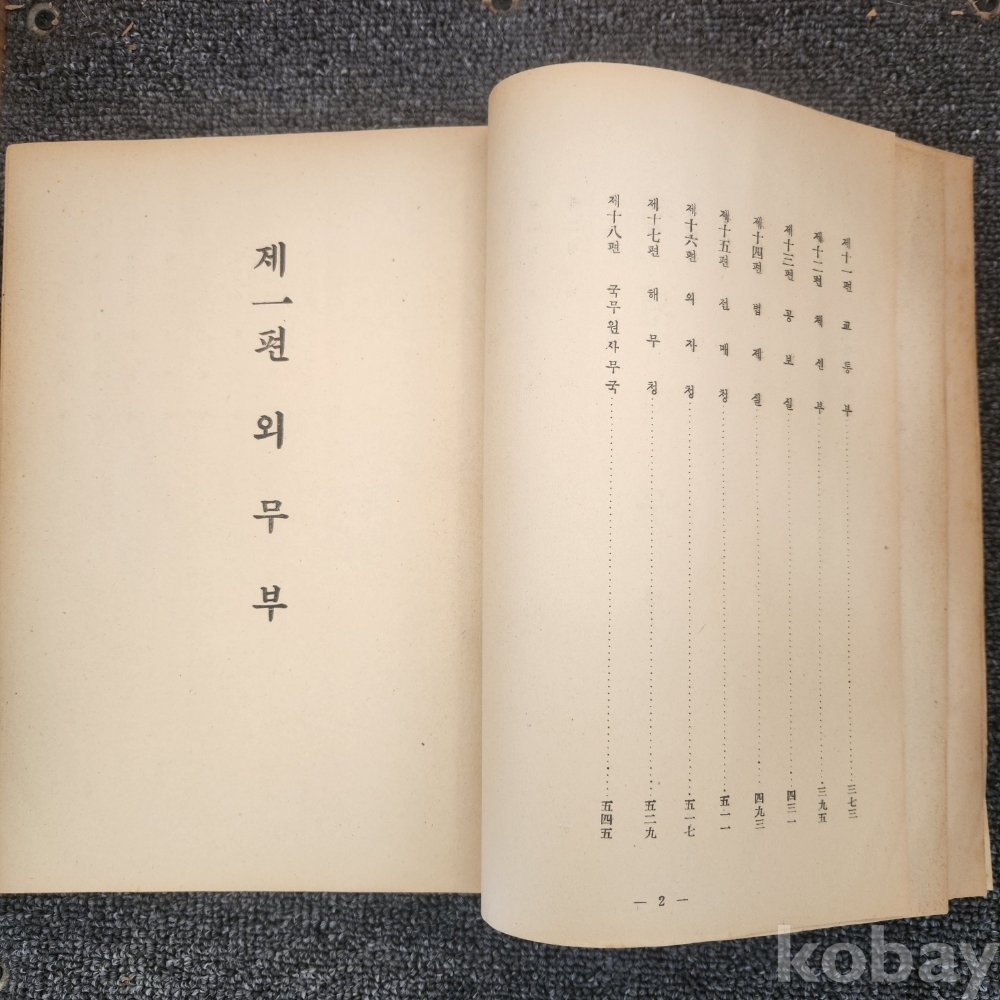 제十一편 교통부 三七三
제十二편 체신부 三九五
제十三편 공보실 四三一
제十四편 법제실 四九三
제十五편 전매청 五一一
제十六편 외자청 五一七
제十七편 해무청 五二九
제十八편 국무원사무국 五四五
— 2 —
제一편 외무부
kobay